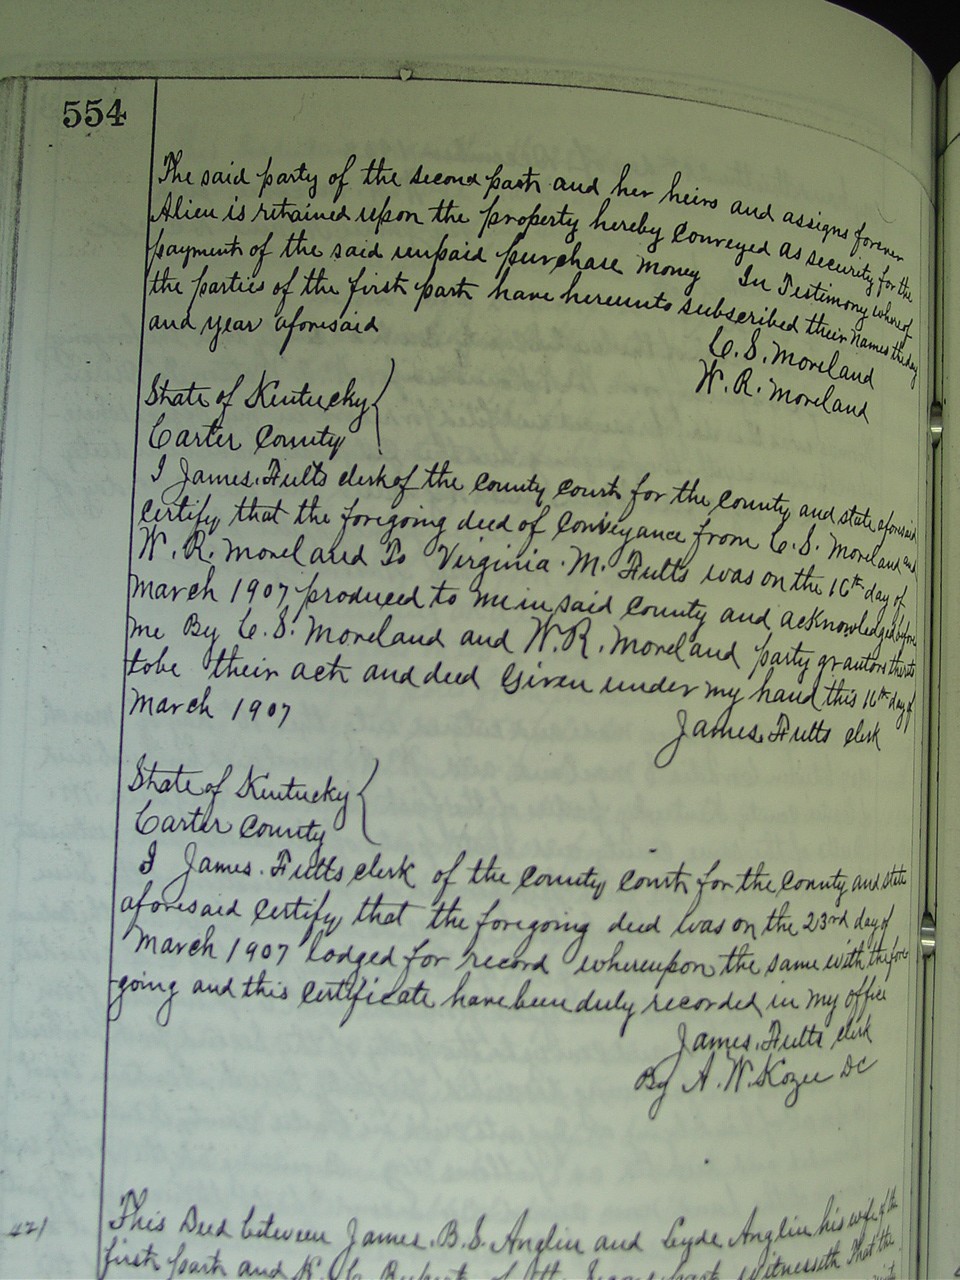 554
The said party of the second part and her heirs and assigns forever
A lien is retained upon the property hereby conveyed as security for the
payment of the said unpaid purchase money In Testimony whereof
the parties of the first part have hereunto subscribed their names the day
and year aforesaid
C. S. Moreland
W. R. Moreland
State of Kentucky
Carter County
I James. Fults clerk of the County Court for the County and state aforesaid
certify that the foregoing deed of Conveyance from C. S. Moreland and
W. R. Moreland To Virginia. M. Fults was on the 16th day of
March 1907 produced to me in said County and acknowledged before
me By C. S. Moreland and W. R. Moreland party grantors thereto
to be their act and deed Given under my hand this 16th day of
March 1907
James. Fults clerk
State of Kentucky
Carter County
I James. Fults clerk of the County Court for the County and state
aforesaid certify that the foregoing deed was on the 23rd day of
March 1907 lodged for record whereupon the same with the fore
going and this certificate have been duly recorded in my office
James. Fults clerk
By A. W. Kozee DC
This Deed between James. B. S. Anglin and Anglin his wife of the
first part and of the Second part Witnesseth That the